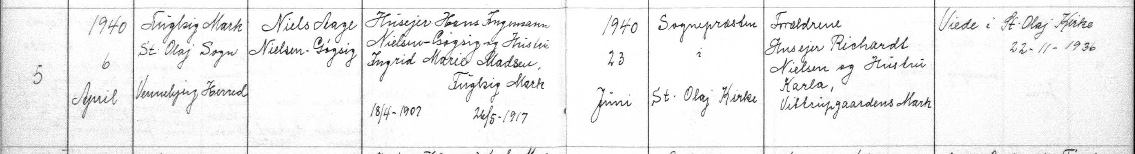 5
1940
6
April
Fuglsig Mark
St. Olaj Sogn
Vennebjerg Herred
Niels Aage
Nielsen-Gøgsig
Husejer Hans Ingemann
Nielsen-Gøgsig og Hustru
Ingrid Marie Madsen,
Fuglsig Mark
18/4-1907 26/5-1917
1940
23
Juni
Sognepræsten
i
St. Olaj Kirke
Forældrene
Husejer Richardt
Nielsen og Hustru
Karla,
Vittrupgaardens Mark
Viede i St. Olaj Kirke
22-11-1936